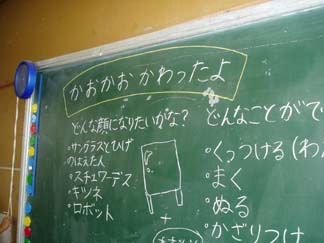 かおかおかわったよ
どんな顔になりたいがな?
・サングラスとひげ
のはえた人
・スチュワーデス
・キツネ
・ロボット
+
どんなことがで
・くっつける(わ
・まく
・ぬる
・かざりつけ